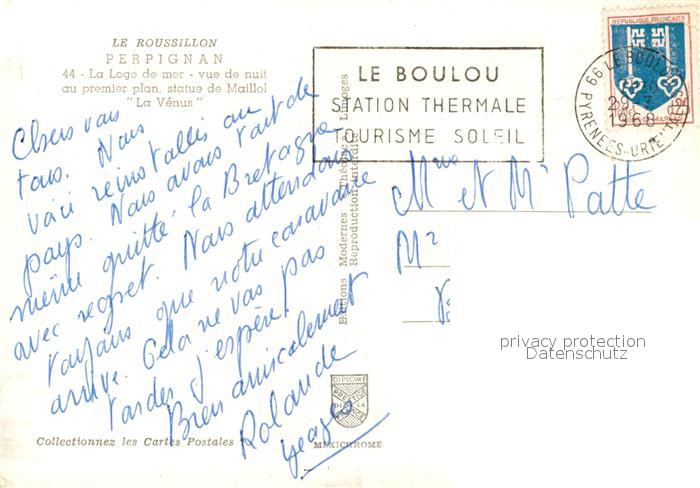 LE ROUSSILLON
PERPIGNAN
44 - La Loge de mer - vue de nuit
au premier plan, statue de Maillol
"La Vénus"
Chers vous
tous. Nous
voici reinstallés au
pays. Nous avons tout de
même quitté la Bretagne
avec regret. Nous attendons
toujours que notre caravane
arrive. Cela ne va pas
tarder j'espère!
Bien amicalement
Rolande
Collectionnez les Cartes Postales
Editions Modernes Théojac, Limoges
Reproduction interdite
DIPLOME
PRESTIGE
DE LA
FRANCE
MEXICHROME
LE BOULOU
STATION THERMALE
TOURISME SOLEIL
REPUBLIQUE FRANÇAISE
66 LE BOULOU
29-7
1968
PYRENEES-ORIENTALES
Mme et Mr Patte
Mr
privacy protection
Datenschutz